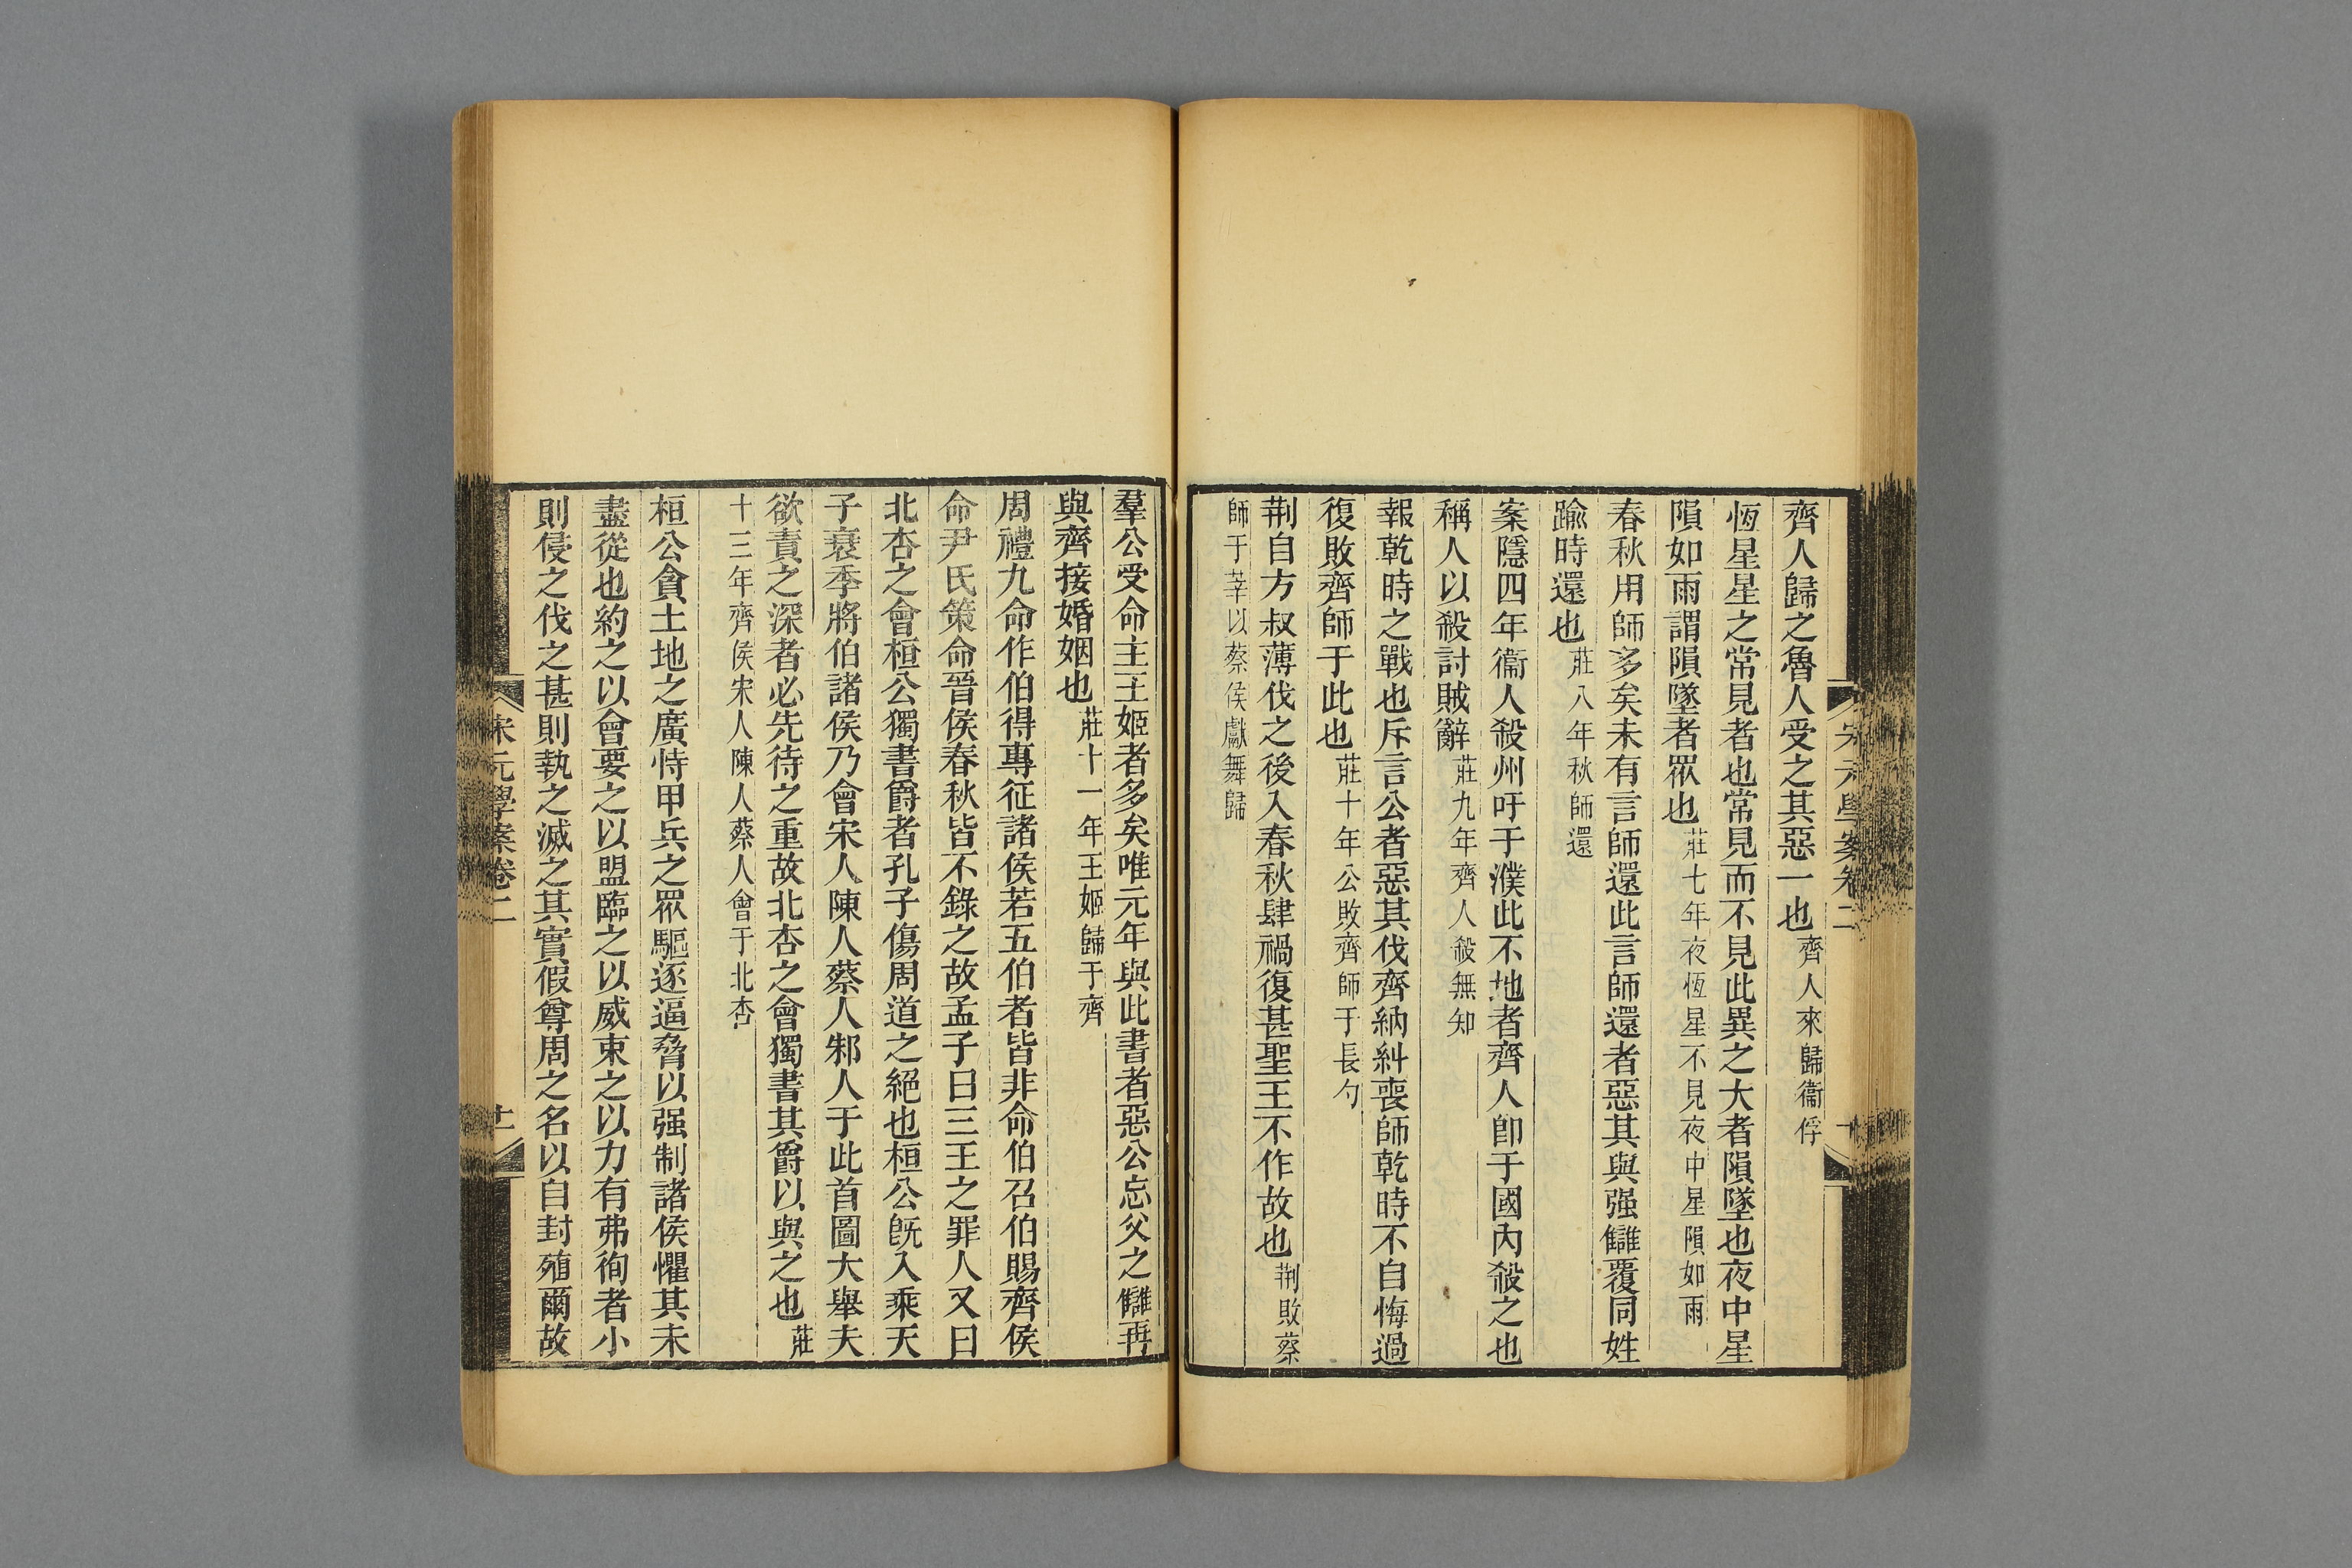 齊人歸之魯人受之其惡一也齊人來歸衞俘
恆星星之常見者也常見而不見此異之大者隕墜也夜中星
隕如雨謂隕墜者眾也莊七年夜恆星不見夜中星隕如雨
春秋用師多矣未有言師還此言師還者惡其與强讎覆同姓
踰時還也莊八年秋師還
案隱四年衞人殺州吁于濮此不地者齊人卽于國內殺之也
稱人以殺討賊辭莊九年齊人殺無知
報乾時之戰也斥言公者惡其伐齊納糾喪師乾時不自悔過
復敗齊師于此也莊十年公敗齊師于長勺
荆自方叔薄伐之後入春秋肆禍復甚聖王不作故也荆敗蔡
師于莘以蔡侯獻舞歸
羣公受命主王姬者多矣唯元年與此書者惡公忘父之讎再
與齊接婚姻也莊十一年王姬歸于齊
周禮九命作伯得專征諸侯若五伯者皆非命伯召伯賜齊侯
命尹氏策命晉侯春秋皆不錄之故孟子曰三王之罪人又曰
北杏之會桓公獨書爵者孔子傷周道之絕也桓公旣入乘天
子衰季將伯諸侯乃會宋人陳人蔡人邾人于此首圖大舉夫
欲責之深者必先待之重故北杏之會獨書其爵以與之也莊
十三年齊侯宋人陳人蔡人會于北杏
桓公貪土地之廣恃甲兵之眾驅逐逼脅以强制諸侯懼其未
盡從也約之以會要之以盟臨之以威束之以力有弗徇者小
則侵之伐之甚則執之滅之其實假尊周之名以自封殖爾故
宋元學案卷二